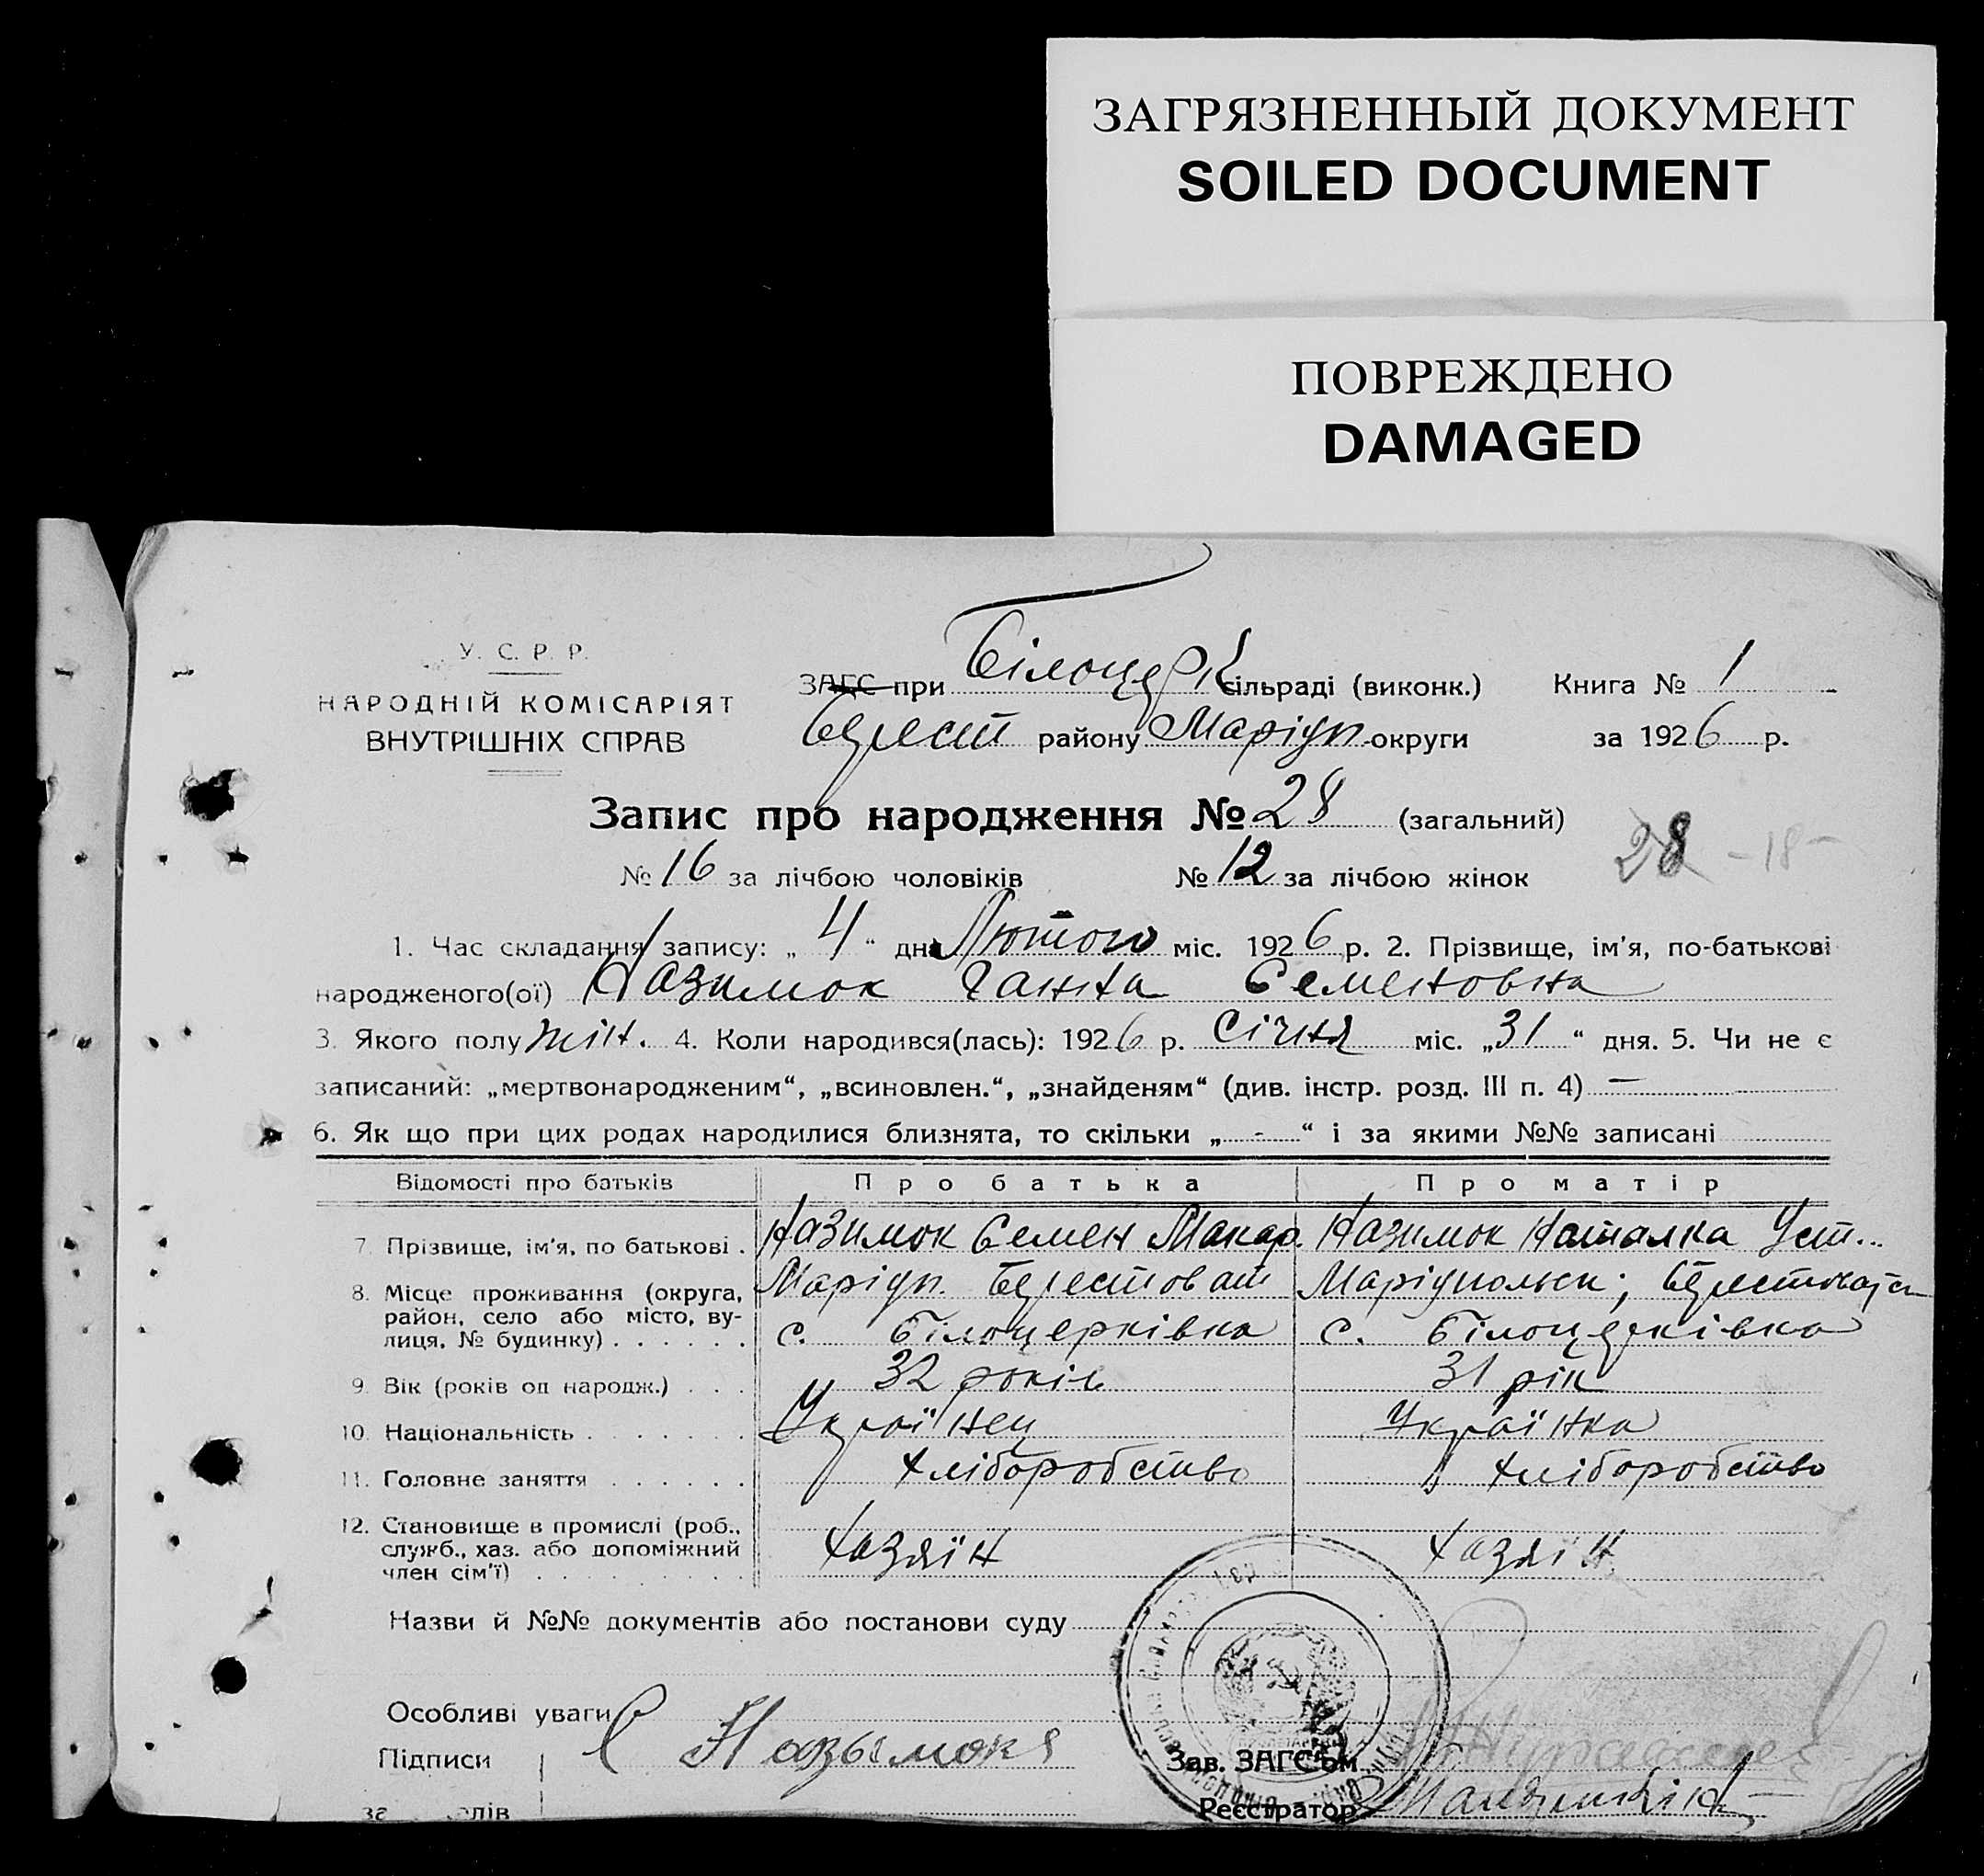 ЗАГРЯЗНЕННЫЙ ДОКУМЕНТ
SOILED DOCUMENT
ПОВРЕЖДЕНО
DAMAGED
У. С. Р. Р.
НАРОДНІЙ КОМІСАРІЯТ
ВНУТРІШНІХ СПРАВ
ЗАГС при Білоцерк сільраді (виконк.) Книга № 1
району Маріуп. округи за 1926 р.
Запис про народження № 28 (загальний)
№ 16 за лічбою чоловіків № 12 за лічбою жінок
28 - 18 -
1. Час складання запису: „ 4 “ дня Лютого міс. 1926 р. 2. Прізвище, ім'я, по-батькові
народженого(ої) Назимок Ганна Семеновна
3. Якого полу жін. 4. Коли народився(лась): 1926 р. Січня міс. „31“ дня. 5. Чи не є
записаний: „мертвонародженим“, „всиновлен.“, „знайденям“ (див. інстр. розд. III п. 4) —
6. Як що при цих родах народилися близнята, то скільки „ - “ і за якими №№ записані
Відомості про батьків Про батька Про матір
7. Прізвище, ім'я, по батькові . Назимок Семен Макар. Назимок Наталка Уст...
8. Місце проживання (округа, район, село або місто, вулиця, № будинку) . . . . . . Маріуп. Берестоват Маріупольск;
с. Білоцерківка с. Білоцерківка
9. Вік (років од народж.) . . . 32 років 31 рік
10. Національність . . . . . . . Українец Українка
11. Головне заняття . . . . . . Хліборобство Хліборобство
12. Становище в промислі (роб., служб., хаз. або допоміжний член сім'ї) . . . . . . . . . Хазяїн Хазяїн
Назви й №№ документів або постанови суду
Особливі уваги
Підписи С Назымокя
Зав. ЗАГС'ом
Реєстратор